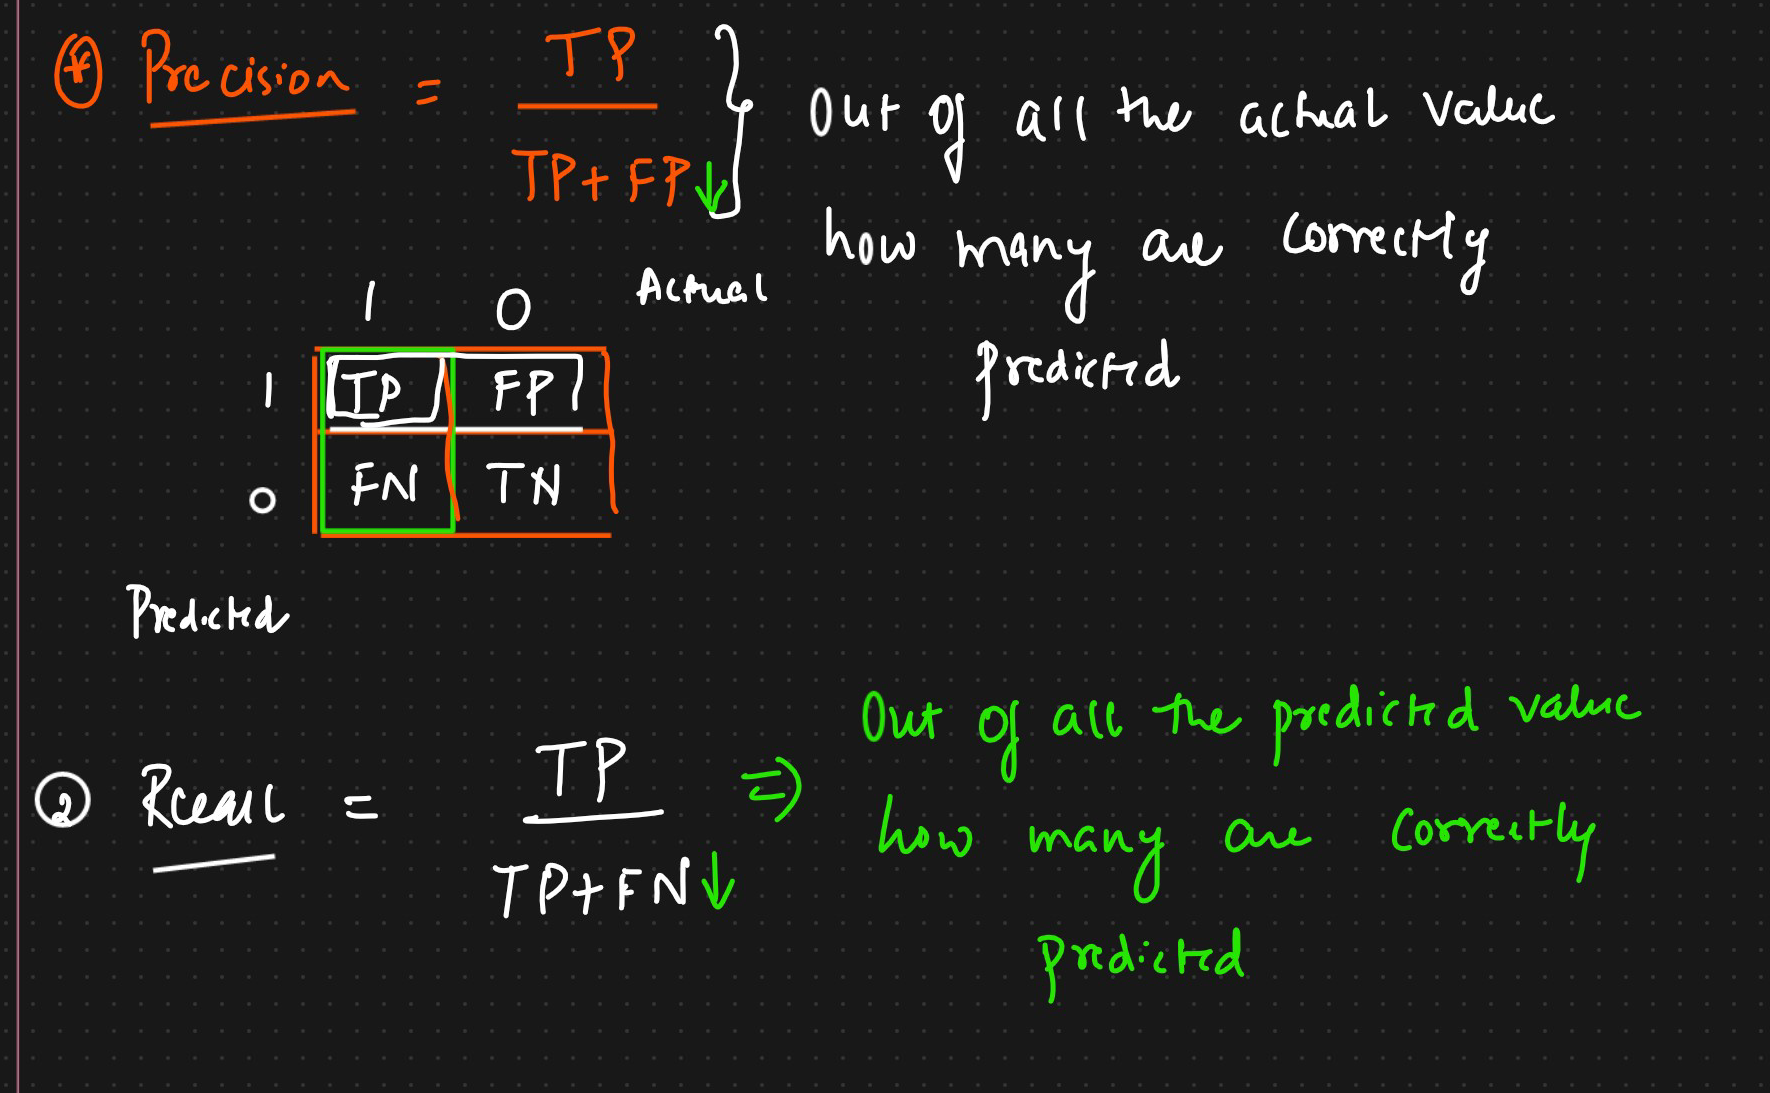 * Precision = TP
TP + FP ↓
Out of all the actual value
how many are correctly
predicted
1 0 Actual
1 TP FP
0 FN TN
Predicted
2 Recall = TP
TP + FN ↓
⇒ Out of all the predicted value
how many are correctly
predicted